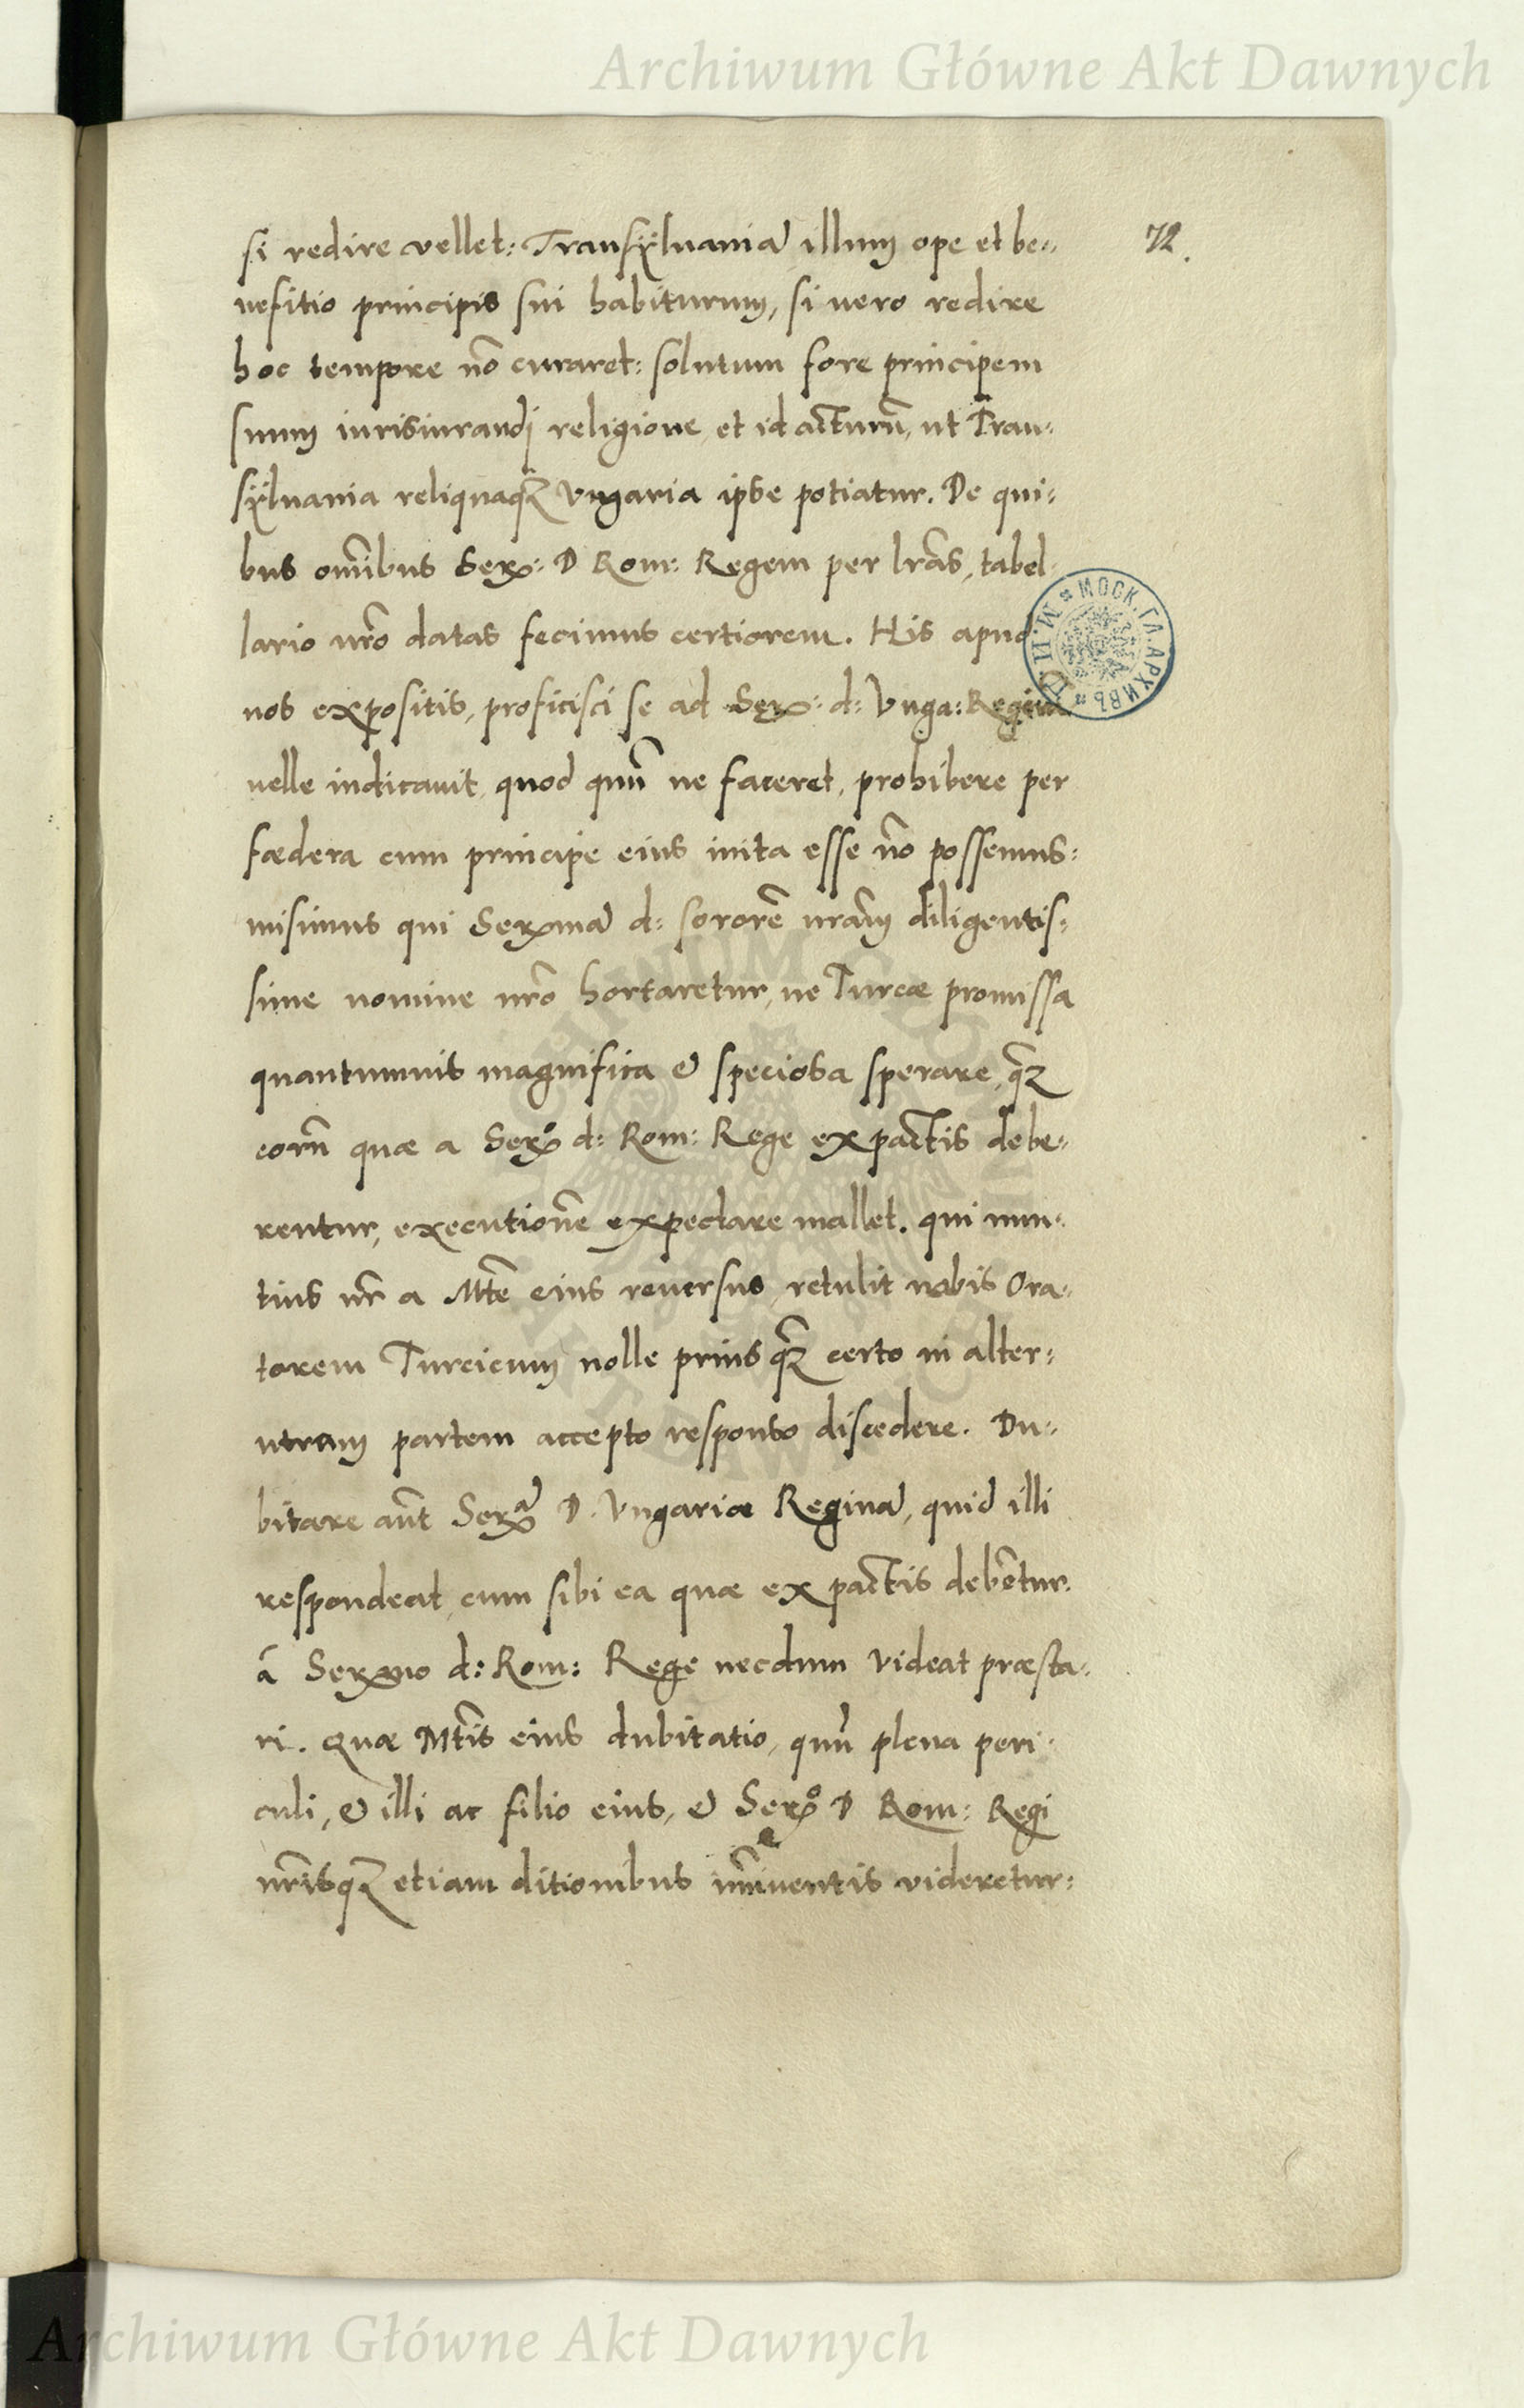 Archiwum Główne Akt Dawnych
72.
si redire vellet: Transÿluaniā illum ope et be=
nefitio principis sui habiturum, si uero redire
hoc tempore nō curaret: solutum fore principem
suum iurisiurandi religione, et id acturū, ut Tran=
sÿluania reliquaqꝫ Vngaria ipse potiatur. De qui=
bus om̄ibus Serx: D Rom: Regem per lr̄as, tabel=
lario nr̄o datas fecimus certiorem. His apud
nos expositis, proficisci se ad Serx: d: Vnga: Reginā
uelle indicauit, quod quū ne faceret, prohibere per
fœdera cum principe eius inita esse nō possemus:
misimus qui Serxmā d: sororē nr̄am diligentis=
sime nomine nr̄o hortaretur, ne Turcæ promissa
quantumuis magnifica & speciosa sperare, qꝫ̄
eorū quæ a Serx° d: Rom: Rege ex pactis debe=
rentur, executionē expectare mallet. qui nun=
tius nr̄ a Mte̅ eius reuersus, retulit nobis Ora=
torem Turcicum nolle prius qꝫ̄ certo in alter=
utram partem accepto responso discedere. Du=
bitare aūt Serxā D. Vngariæ Reginā, quid illi
respondeat, cum sibi ea quæ ex pactis debētur
ā Serxmo d: Rom: Rege necdum videat præsta=
ri. Quæ Mtis̄ eius dubitatio, quū plena peri=
culi, & illi ac filio eius, & Serx° D Rom: Regi
nr̄isqꝫ etiam ditionibus im̄inentis uideretur:
МОСК. ГЛ. АРХИВЪ М. И. Д.
Archiwum Główne Akt Dawnych